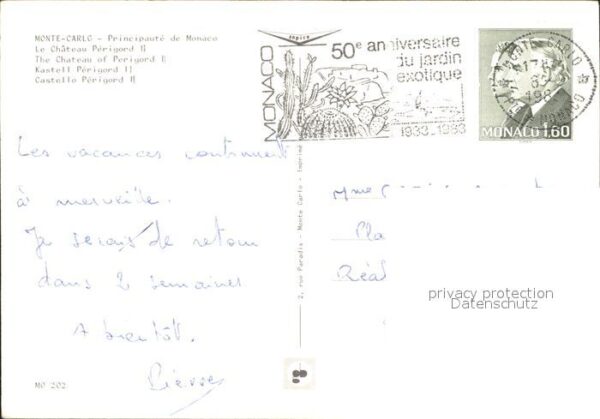 MONTE-CARLO - Principauté de Monaco
Le Château Périgord II
The Chateau of Perigord II
Kastell Périgord II
Castello Périgord II
MONACO
50e anniversaire
du jardin
exotique
1933-1983
MONTE-CARLO
MONACO
MONACO 1,60
Les vacances continuent
à merveille.
Je serais de retour
dans 2 semaines
A bientôt.
Pierre
2, rue Paradis - Monte Carlo - Imprimé
Mme
Pla
Réal
privacy protection
Datenschutz
MO 202